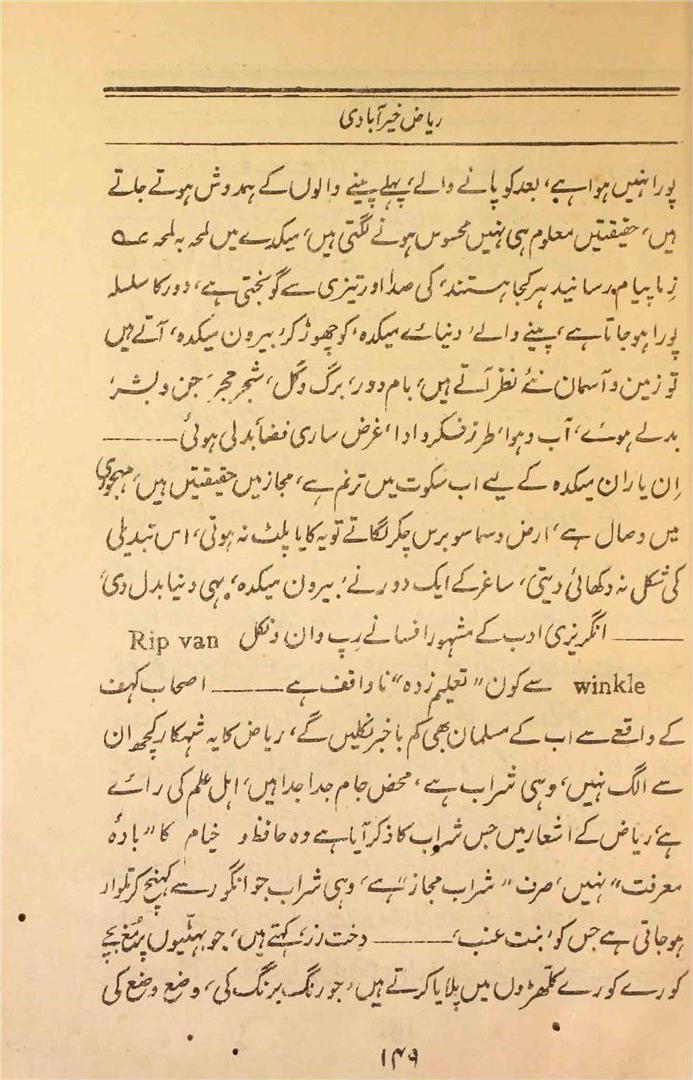 ریاض خیرآبادی
پورا نہیں ہوا ہے، بعد کو پانے والے، پہلے پینے والوں کے ہمدوش ہوتے جاتے
ہیں، حقیقتیں معلوم ہی نہیں محسوس ہونے لگتی ہیں، میکدے میں لمحہ بہ لمحہ ؎
زما پیام رسانید ہر کجا ہستند، کی صدا اور تیزی سے گونجتی ہے، دور کا سلسلہ
پورا ہو جاتا ہے، پینے والے، دنیائے میکدہ، کو چھوڑ کر، بیرون میکدہ، آتے ہیں
تو زمین و آسمان نئے نظر آتے ہیں، بام و در، برگ و گل، شجر حجر، جن و بشر،
بدلے ہوئے، آب و ہوا، طرز فکر و ادا، غرض ساری فضا بدلی ہوئی ———
اِن یاران میکدہ کے لیے اب سکوت میں ترنم ہے، مجاز میں حقیقتیں ہیں، مہجوری
میں وصال ہے، ارض و سما سو برس چکر لگاتے تو یہ کایا پلٹ نہ ہوتی، اس تبدیلی
کی شکل نہ دکھائی دیتی، ساغر کے ایک دور نے، بیرون میکدہ، یہی دنیا بدل دی،
——— انگریزی ادب کے مشہور افسانے رِپ وان ونکل Rip van
winkle سے کون "تعلیم زدہ" ناواقف ہے ——— اصحاب کہف
کے واقعے سے اب کے مسلمان بھی کم باخبر نکلیں گے، ریاض کا یہ شہکار کچھ ان
سے الگ نہیں، وہی شراب ہے، محض جام جدا جدا ہیں، اہل علم کی رائے
ہے، ریاض کے اشعار میں جس شراب کا ذکر آیا ہے وہ حافظ و خیام کا "بادۂ
معرفت" نہیں، صرف "شراب مجاز" ہے، وہی شراب جو انگور سے کھنچ کر تلوار
ہو جاتی ہے جس کو، بنت عنب، ——— دخت رز، کہتے ہیں، جو بھٹیوں پر مُغ بچے
کورے کورے کلھڑوں میں پلایا کرتے ہیں، جو رنگ برنگ کی، وضع وضع کی
۱۴۹